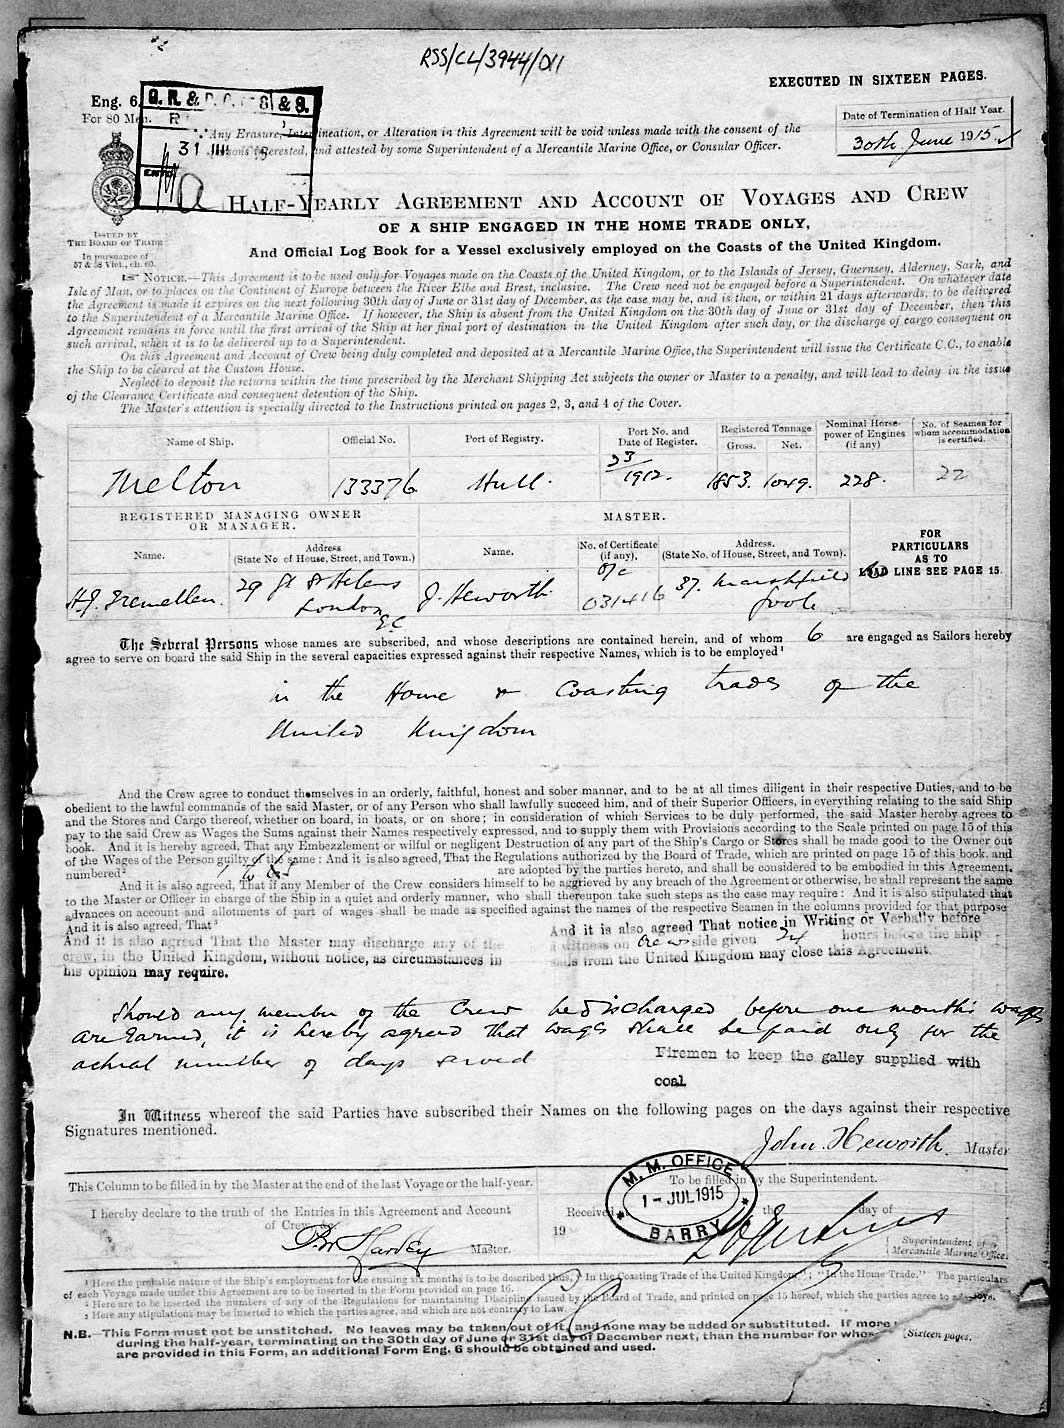 RSS/CL/3944/011
EXECUTED IN SIXTEEN PAGES.
Eng. 6.
For 80 Men.
G. R. & S. & S.
31 JUL 15
Any Erasure, Interlineation, or Alteration in this Agreement will be void unless made with the consent of the
persons interested, and attested by some Superintendent of a Mercantile Marine Office, or Consular Officer.
Date of Termination of Half Year.
30th June 1915.
HALF-YEARLY AGREEMENT AND ACCOUNT OF VOYAGES AND CREW
OF A SHIP ENGAGED IN THE HOME TRADE ONLY,
And Official Log Book for a Vessel exclusively employed on the Coasts of the United Kingdom.
ISSUED BY
THE BOARD OF TRADE
In pursuance of
57 & 58 Vict., ch. 60.
☞ NOTICE.—This Agreement is to be used only for Voyages made on the Coasts of the United Kingdom, or to the Islands of Jersey, Guernsey, Alderney, Sark, and
Isle of Man, or to places on the Continent of Europe between the River Elbe and Brest, inclusive. The Crew need not be engaged before a Superintendent. On whatever date
the Agreement is made it expires on the next following 30th day of June or 31st day of December, as the case may be, and is then, or within 21 days afterwards, to be delivered
to the Superintendent of a Mercantile Marine Office. If however, the Ship is absent from the United Kingdom on the 30th day of June or 31st day of December, then this
Agreement remains in force until the first arrival of the Ship at her final port of destination in the United Kingdom after such day, or the discharge of cargo consequent on
such arrival, when it is to be delivered up to a Superintendent.
On this Agreement and Account of Crew being duly completed and deposited at a Mercantile Marine Office, the Superintendent will issue the Certificate C.C., to enable
the Ship to be cleared at the Custom House.
Neglect to deposit the returns within the time prescribed by the Merchant Shipping Act subjects the owner or Master to a penalty, and will lead to delay in the issue
of the Clearance Certificate and consequent detention of the Ship.
The Master's attention is specially directed to the Instructions printed on pages 2, 3, and 4 of the Cover.
Name of Ship. Official No. Port of Registry. Port No. and Date of Register. Registered Tonnage Gross. Net. Nominal Horse-power of Engines (if any) No. of Seamen for whom accommodation is certified.
Melton 133376 Hull. 23/1912. 1853. 1049. 228. 22
REGISTERED MANAGING OWNER OR MANAGER. MASTER.
Name. Address (State No of House, Street, and Town.) Name. No. of Certificate (if any). Address. (State No. of House, Street, and Town).
FOR PARTICULARS AS TO LOAD LINE SEE PAGE 15.
29 Gt St Helens London E.C
J. Heworth 031416 37. Marshfield Goole
The Several Persons whose names are subscribed, and whose descriptions are contained herein, and of whom 6 are engaged as Sailors hereby
agree to serve on board the said Ship in the several capacities expressed against their respective Names, which is to be employed¹
in the Home & Coasting trades of the
United Kingdom
And the Crew agree to conduct themselves in an orderly, faithful, honest and sober manner, and to be at all times diligent in their respective Duties, and to be
obedient to the lawful commands of the said Master, or of any Person who shall lawfully succeed him, and of their Superior Officers, in everything relating to the said Ship
and the Stores and Cargo thereof, whether on board, in boats, or on shore; in consideration of which Services to be duly performed, the said Master hereby agrees to
pay to the said Crew as Wages the Sums against their Names respectively expressed, and to supply them with Provisions according to the Scale printed on page 15 of this
book. And it is hereby agreed, That any Embezzlement or wilful or negligent Destruction of any part of the Ship's Cargo or Stores shall be made good to the Owner out
of the Wages of the Person guilty of the same: And it is also agreed, That the Regulations authorized by the Board of Trade, which are printed on page 15 of this book, and
numbered² are adopted by the parties hereto, and shall be considered to be embodied in this Agreement.
And it is also agreed, That if any Member of the Crew considers himself to be aggrieved by any breach of the Agreement or otherwise, he shall represent the same
to the Master or Officer in charge of the Ship in a quiet and orderly manner, who shall thereupon take such steps as the case may require: And it is also stipulated that
advances on account and allotments of part of wages shall be made as specified against the names of the respective Seamen in the columns provided for that purpose
And it is also agreed, That³
And it is also agreed That the Master may discharge any of the
crew, in the United Kingdom, without notice, as circumstances in
his opinion may require.
And it is also agreed That notice in Writing or Verbally before
a witness on crews side given 24 hours before the ship
sails from the United Kingdom may close this Agreement.
Should any member of the Crew be discharged before one month's wages
are Earned, it is hereby agreed that wages shall be paid only for the
actual number of days served
Firemen to keep the galley supplied with
coal
In Witness whereof the said Parties have subscribed their Names on the following pages on the days against their respective
Signatures mentioned.
John Heworth. Master
This Column to be filled in by the Master at the end of the last Voyage or the half-year.
I hereby declare to the truth of the Entries in this Agreement and Account
of Crew, &c.
Master.
To be filled in by the Superintendent.
Received the day of
19
M. M. OFFICE
1 - JUL 1915
BARRY
Superintendent of a
Mercantile Marine Office.
¹ Here the probable nature of the Ship's employment for the ensuing six months is to be described thus, "In the Coasting Trade of the United Kingdom"; "In the Home Trade." The particulars
of each Voyage made under this Agreement are to be inserted in the Form provided on page 16.
² Here are to be inserted the numbers of any of the Regulations for maintaining Discipline issued by the Board of Trade, and printed on page 15 hereof, which the parties agree to adopt.
³ Here any stipulations may be inserted to which the parties agree, and which are not contrary to Law.
N.B.—This Form must not be unstitched. No leaves may be taken out of it, and none may be added or substituted. If more
during the half-year, terminating on the 30th day of June or 31st day of December next, than the number for whom
are provided in this Form, an additional Form Eng. 6 should be obtained and used.
[Sixteen pages.